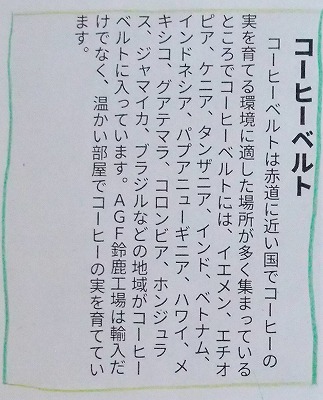 コーヒーベルト
コーヒーベルトは赤道に近い国でコーヒーの
実を育てる環境に適した場所が多く集まっている
ところでコーヒーベルトには、イエメン、エチオ
ピア、ケニア、タンザニア、インド、ベトナム、
インドネシア、パプアニューギニア、ハワイ、メ
キシコ、グアテマラ、コロンビア、ホンジュラ
ス、ジャマイカ、ブラジルなどの地域がコーヒー
ベルトに入っています。ＡＧＦ鈴鹿工場は輸入だ
けでなく、温かい部屋でコーヒーの実を育ててい
ます。